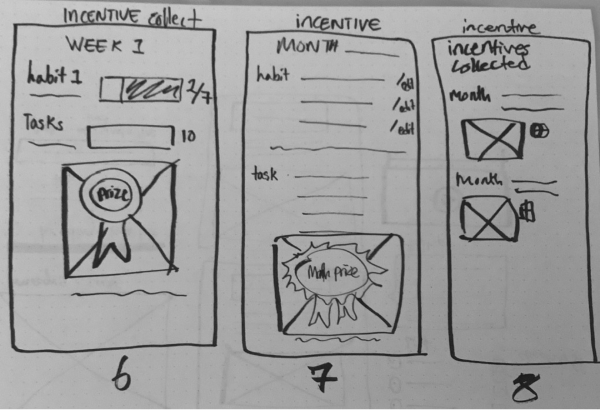 INCENTIVE collect
WEEK 1
habit 1
2/7
Tasks
10
PRIZE
6
INCENTIVE
MONTH
habit
/edit
/edit
/edit
task
Month prize
7
incentive
incentives
collected
Month
Month
8